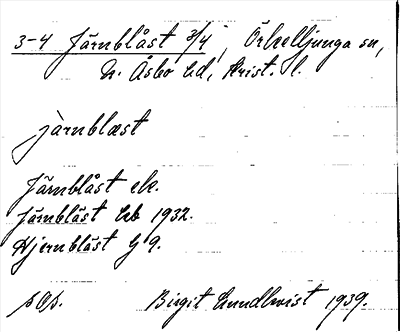 3-4 Järnblåst 3/4, Örkelljunga sn,
N. Åsbo hd, Krist. l.
jàrnblæst
Järnblåst ek.
Järnbläst hb 1932.
Hjernbläst G 9.
sOs. Birgit Lundkvist 1939.